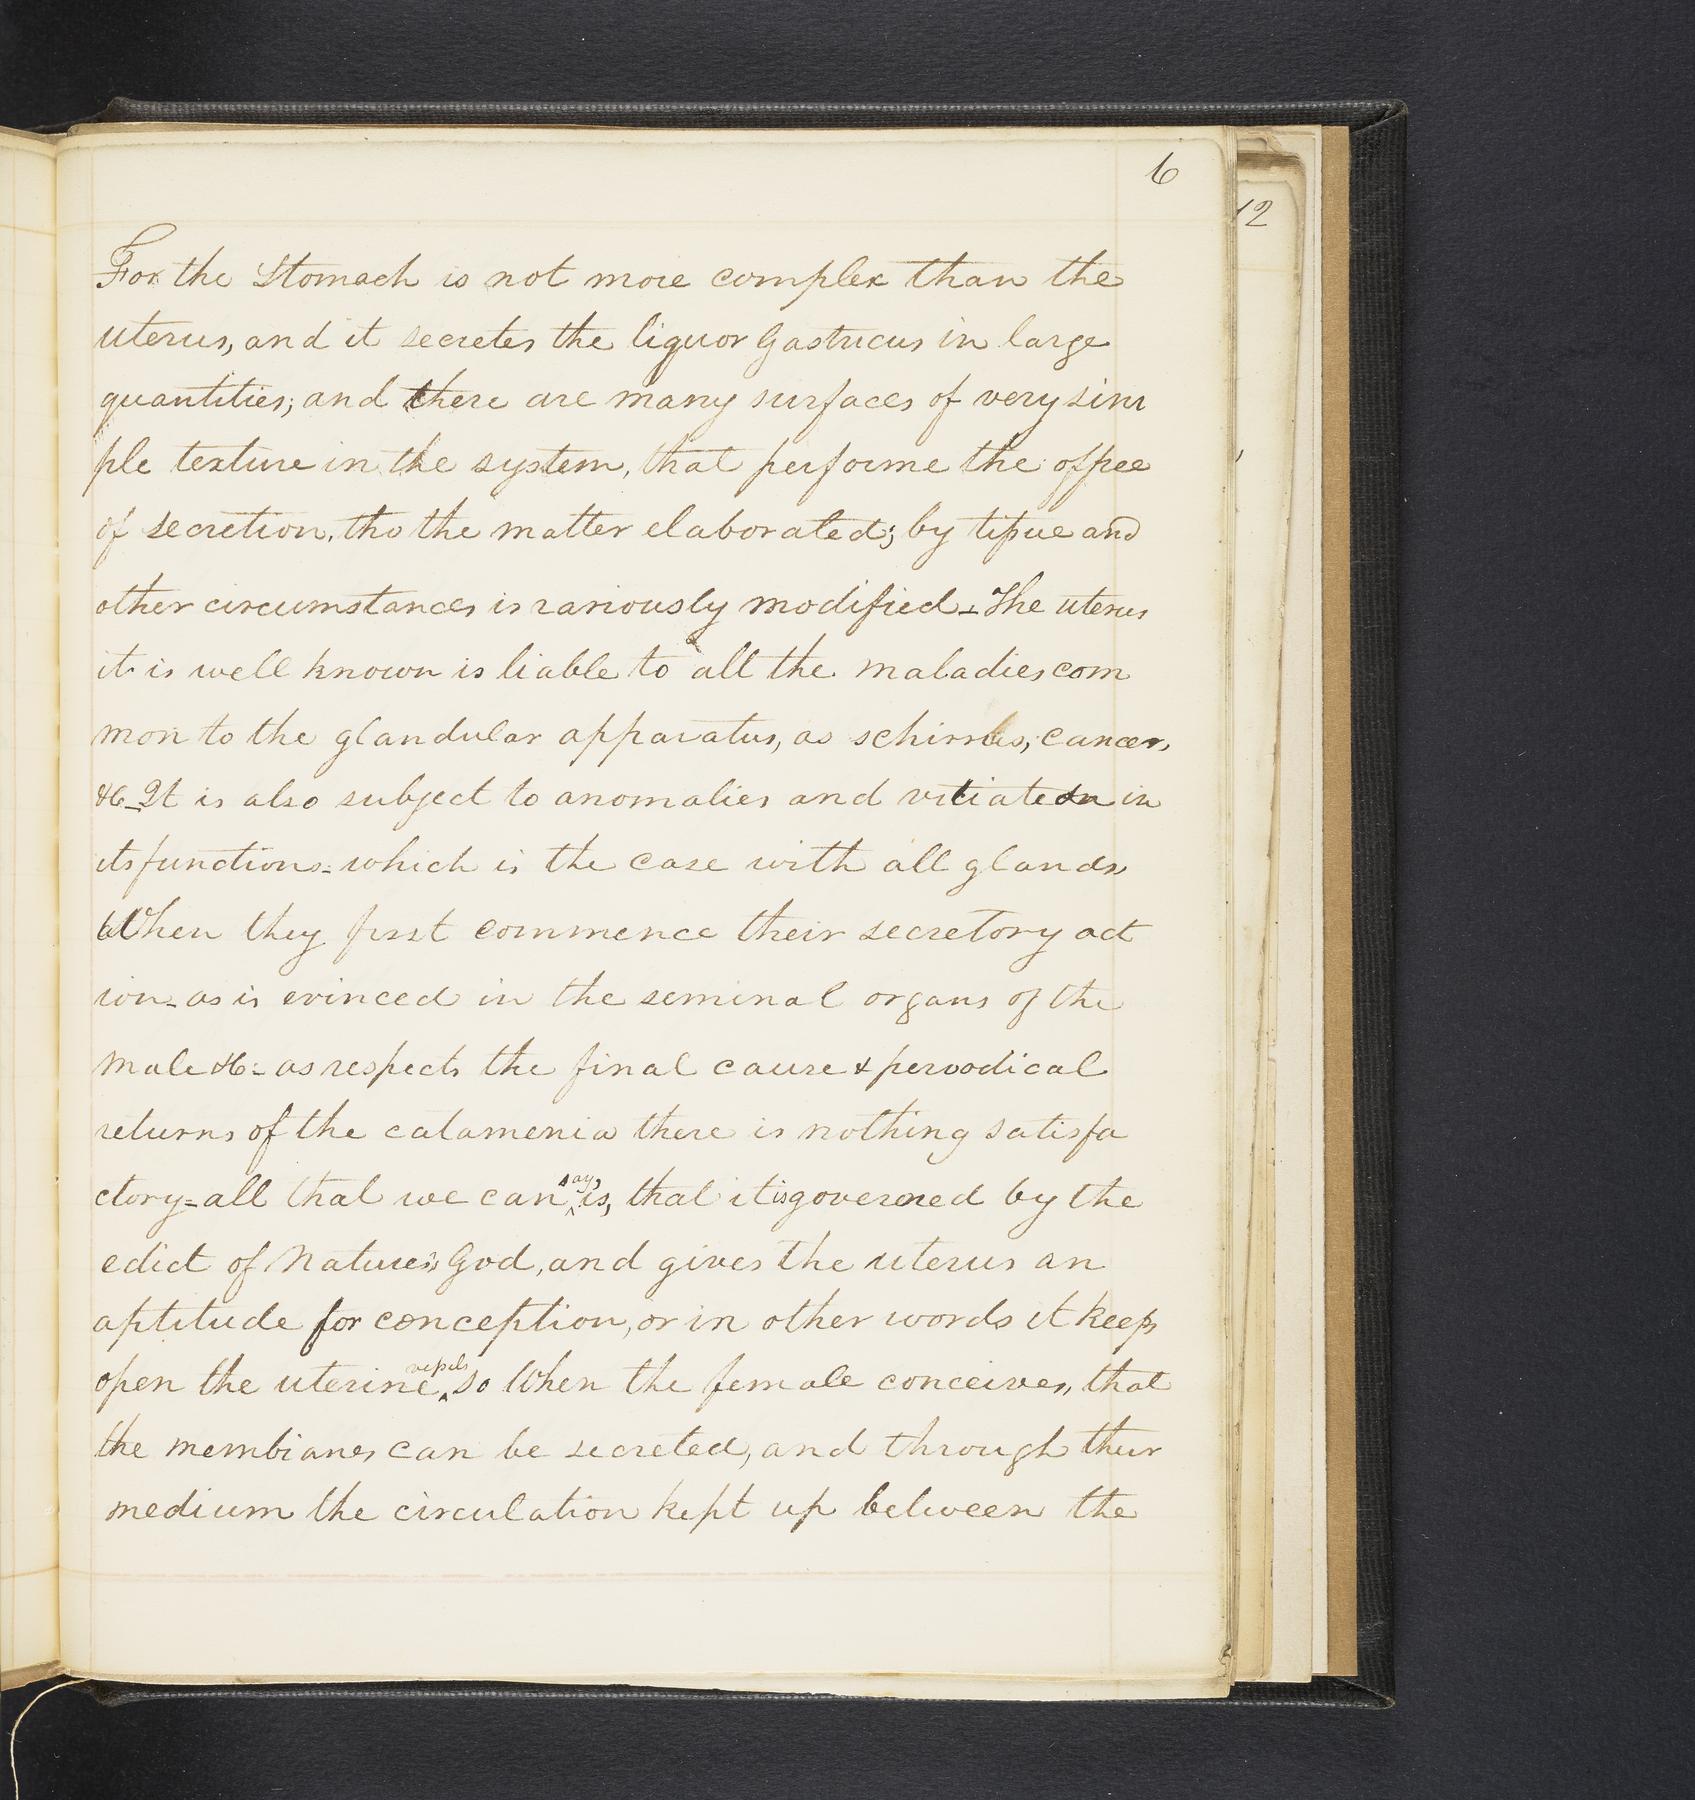 6
12
For the Stomach is not more complex than the
uterus, and it secretes the liquor Gastricus in large
quantities; and there are many surfaces of very sim
ple texture in the system, that performe the office
of secretion, tho the matter elaborated; by tissue and
other circumstances is variously modified - The uterus
it is well known is liable to all the maladies com
mon to the glandular apparatus, as schirrus, cancer,
&c - It is also subject to anomalies and in
its functions - which is the case with all glands,
When they first commence their secretory act
ion - as is evinced in the seminal organs of the
male &c - as respects the final cause & peroodical
returns of the catamenia there is nothing satisfa
ctory - all that we can say, is, that it is governed by the
edict of Nature's God, and gives the uterus an
aptitude for conception, or in other words it keeps
open the uterine vessels so When the female conceives, that
the membranes can be secreted, and through their
medium the circulation kept up between the